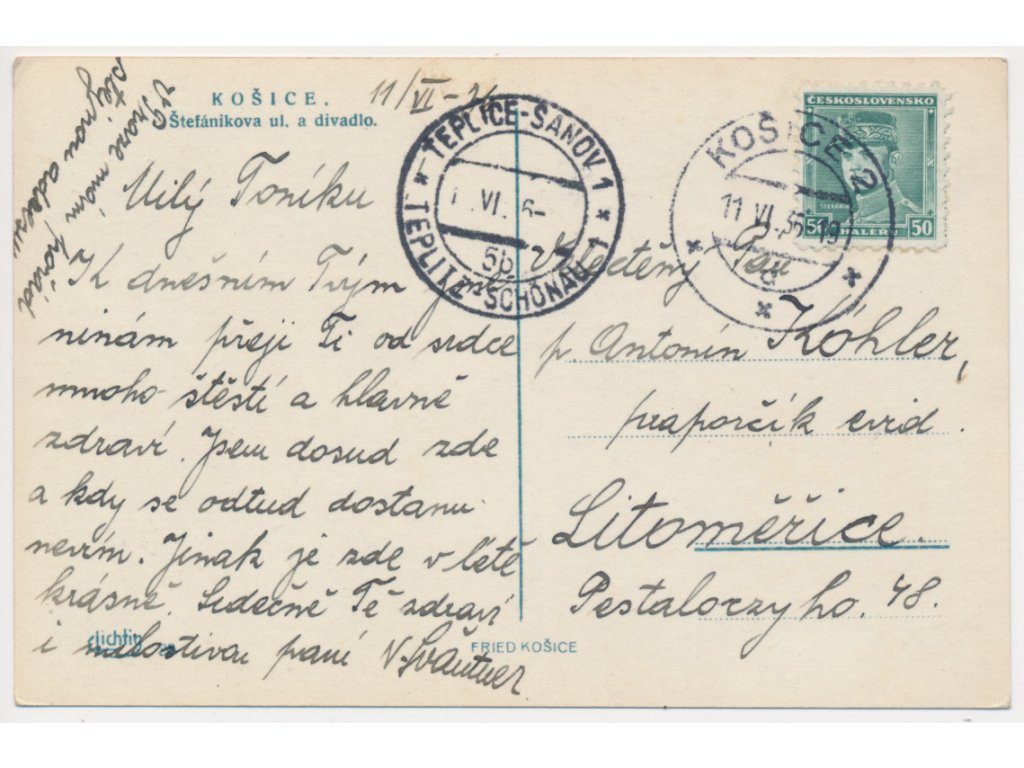 KOŠICE.
Štefánikova ul. a divadlo.
11/VI-36
Milý Toníku
K dnešním Tvým jme-
ninám přeji Ti od srdce
mnoho štěstí a hlavně
zdraví. Jsem dosud zde
a kdy se odtud dostanu
nevím. Jinak je zde v létě
krásně. Srdečně Tě zdraví
i milostivou paní V. Švautner
TEPLICE-ŠANOV 1
VI. 36
5b
TEPLITZ-SCHÖNAU 1
KOŠICE 2
11 VI. 36-19
ČESKOSLOVENSKO
ŠTEFÁNIK
50 HALÉŘŮ 50
Vctěný Pan
p. Antonín Köhler,
praporčík evid.
Litoměřice.
Pestalozzyho. 48.
lichtig
FRIED KOŠICE